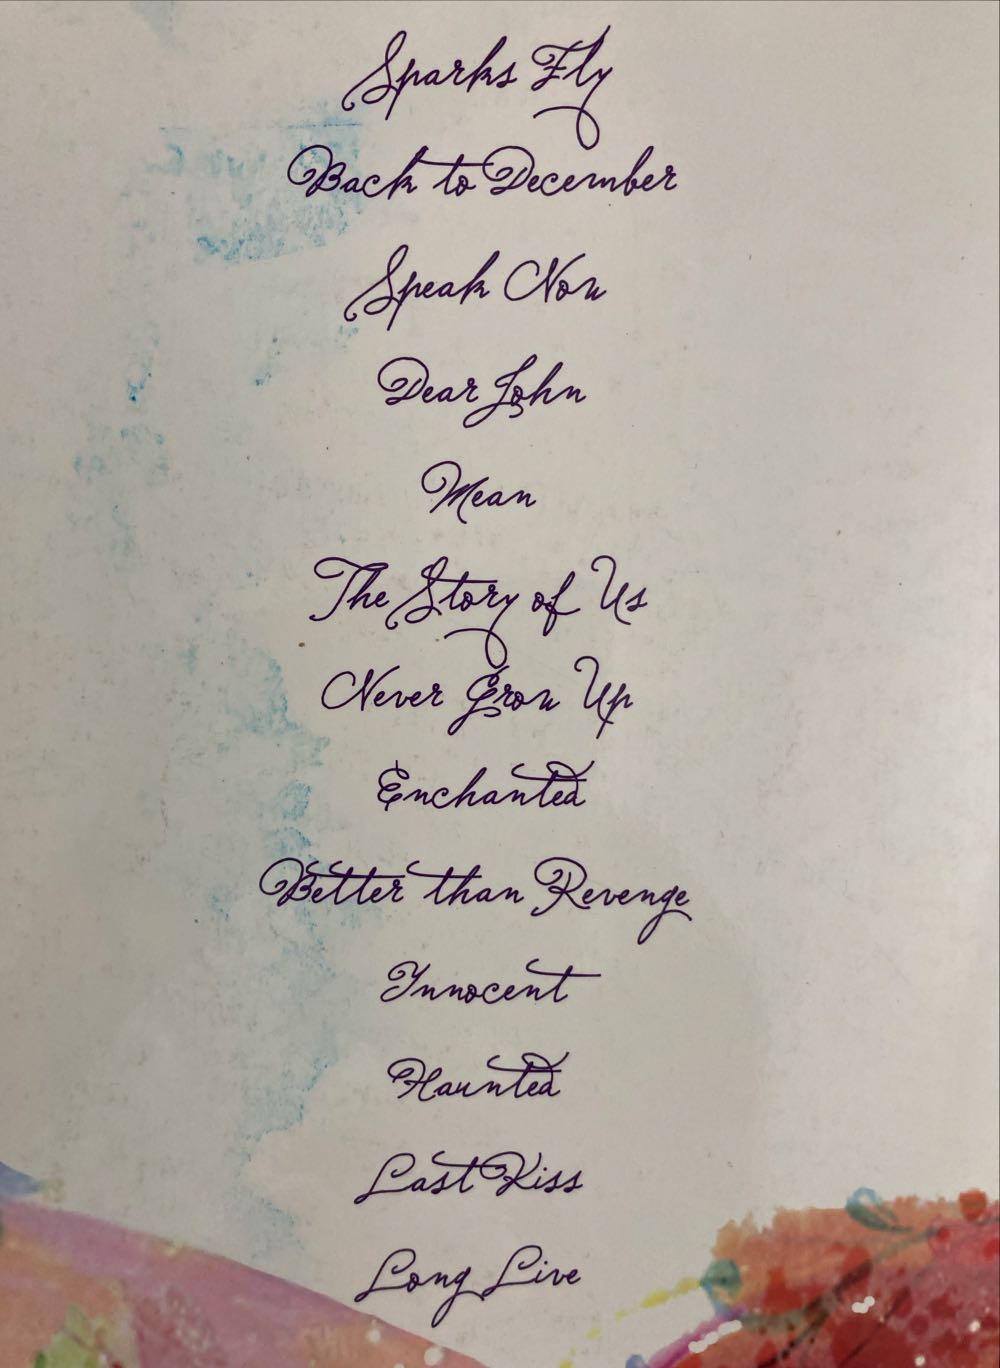 Sparks Fly
Back to December
Speak Now
Dear John
Mean
The Story of Us
Never Grow Up
Enchanted
Better than Revenge
Innocent
Haunted
Last Kiss
Long Live